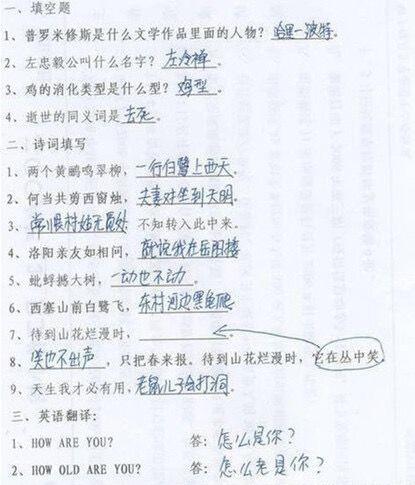 一、填空题
1、普罗米修斯是什么文学作品里面的人物？哈里一波特。
2、左忠毅公叫什么名字？左冷禅。
3、鸡的消化类型是什么型？鸡型。
4、逝世的同义词是去死。
二、诗词填写
1、两个黄鹂鸣翠柳，一行白鹭上西天。
2、何当共剪西窗烛，夫妻对坐到天明。
3、常恨村姑无觅处 不知转入此中来。
4、洛阳亲友如相问，就说我在岳阳楼
5、蚍蜉撼大树，一动也不动。
6、西塞山前白鹭飞，东村河边黑龟爬
7、待到山花烂漫时，。
8、笑也不出声，只把春来报。待到山花烂漫时，它在丛中笑。
9、天生我才必有用，老鼠儿子会打洞。
三、英语翻译：
1、HOW ARE YOU? 答：怎么是你？
2、HOW OLD ARE YOU? 答：怎么老是你？